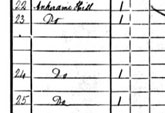 22 Ankrame Hill 1
23 Do 1
24 Do 1
25 Do 1